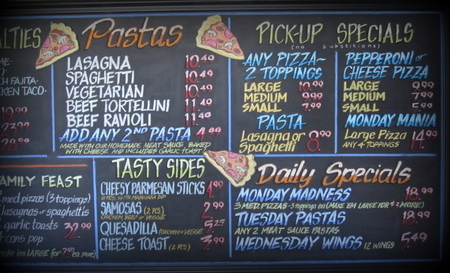 ALTIES
Pastas
LASAGNA 10.49
SPAGHETTI 10.49
VEGETARIAN 10.49
BEEF TORTELLINI 11.49
BEEF RAVIOLI 11.49
ADD ANY 2ND PASTA 4.99
MADE WITH OUR HOMEMADE MEAT SAUCE, BAKED
WITH CHEESE AND INCLUDES GARLIC TOAST
PICK-UP SPECIALS
(no substitutions)
ANY PIZZA-
2 TOPPINGS
LARGE 10.99
MEDIUM 9.99
SMALL 7.99
PASTA
Lasagna or
Spaghetti 8.99
PEPPERONI or
CHEESE PIZZA
LARGE 9.99
MEDIUM 8.99
SMALL 5.99
MONDAY MANIA
Large Pizza 14.99
ANY 4 TOPPINGS
FAMILY FEAST
med pizzas (3 toppings)
lasagnas or spaghettis
garlic toasts
cans pop
TASTY SIDES
CHEESY PARMESAN STICKS 4.99
SAMOSAS (2 PCS) 2.99
QUESADILLA 6.99
CHEESE TOAST (2 PCS) 3.99
Daily Specials
MONDAY MADNESS 18.99
3 MED PIZZAS - 3 toppings ea (MAKE EM LARGE FOR $2 MORE)
TUESDAY PASTAS 18.99
ANY 2 MEAT SAUCE PASTAS
WEDNESDAY WINGS 12 WINGS 5.49